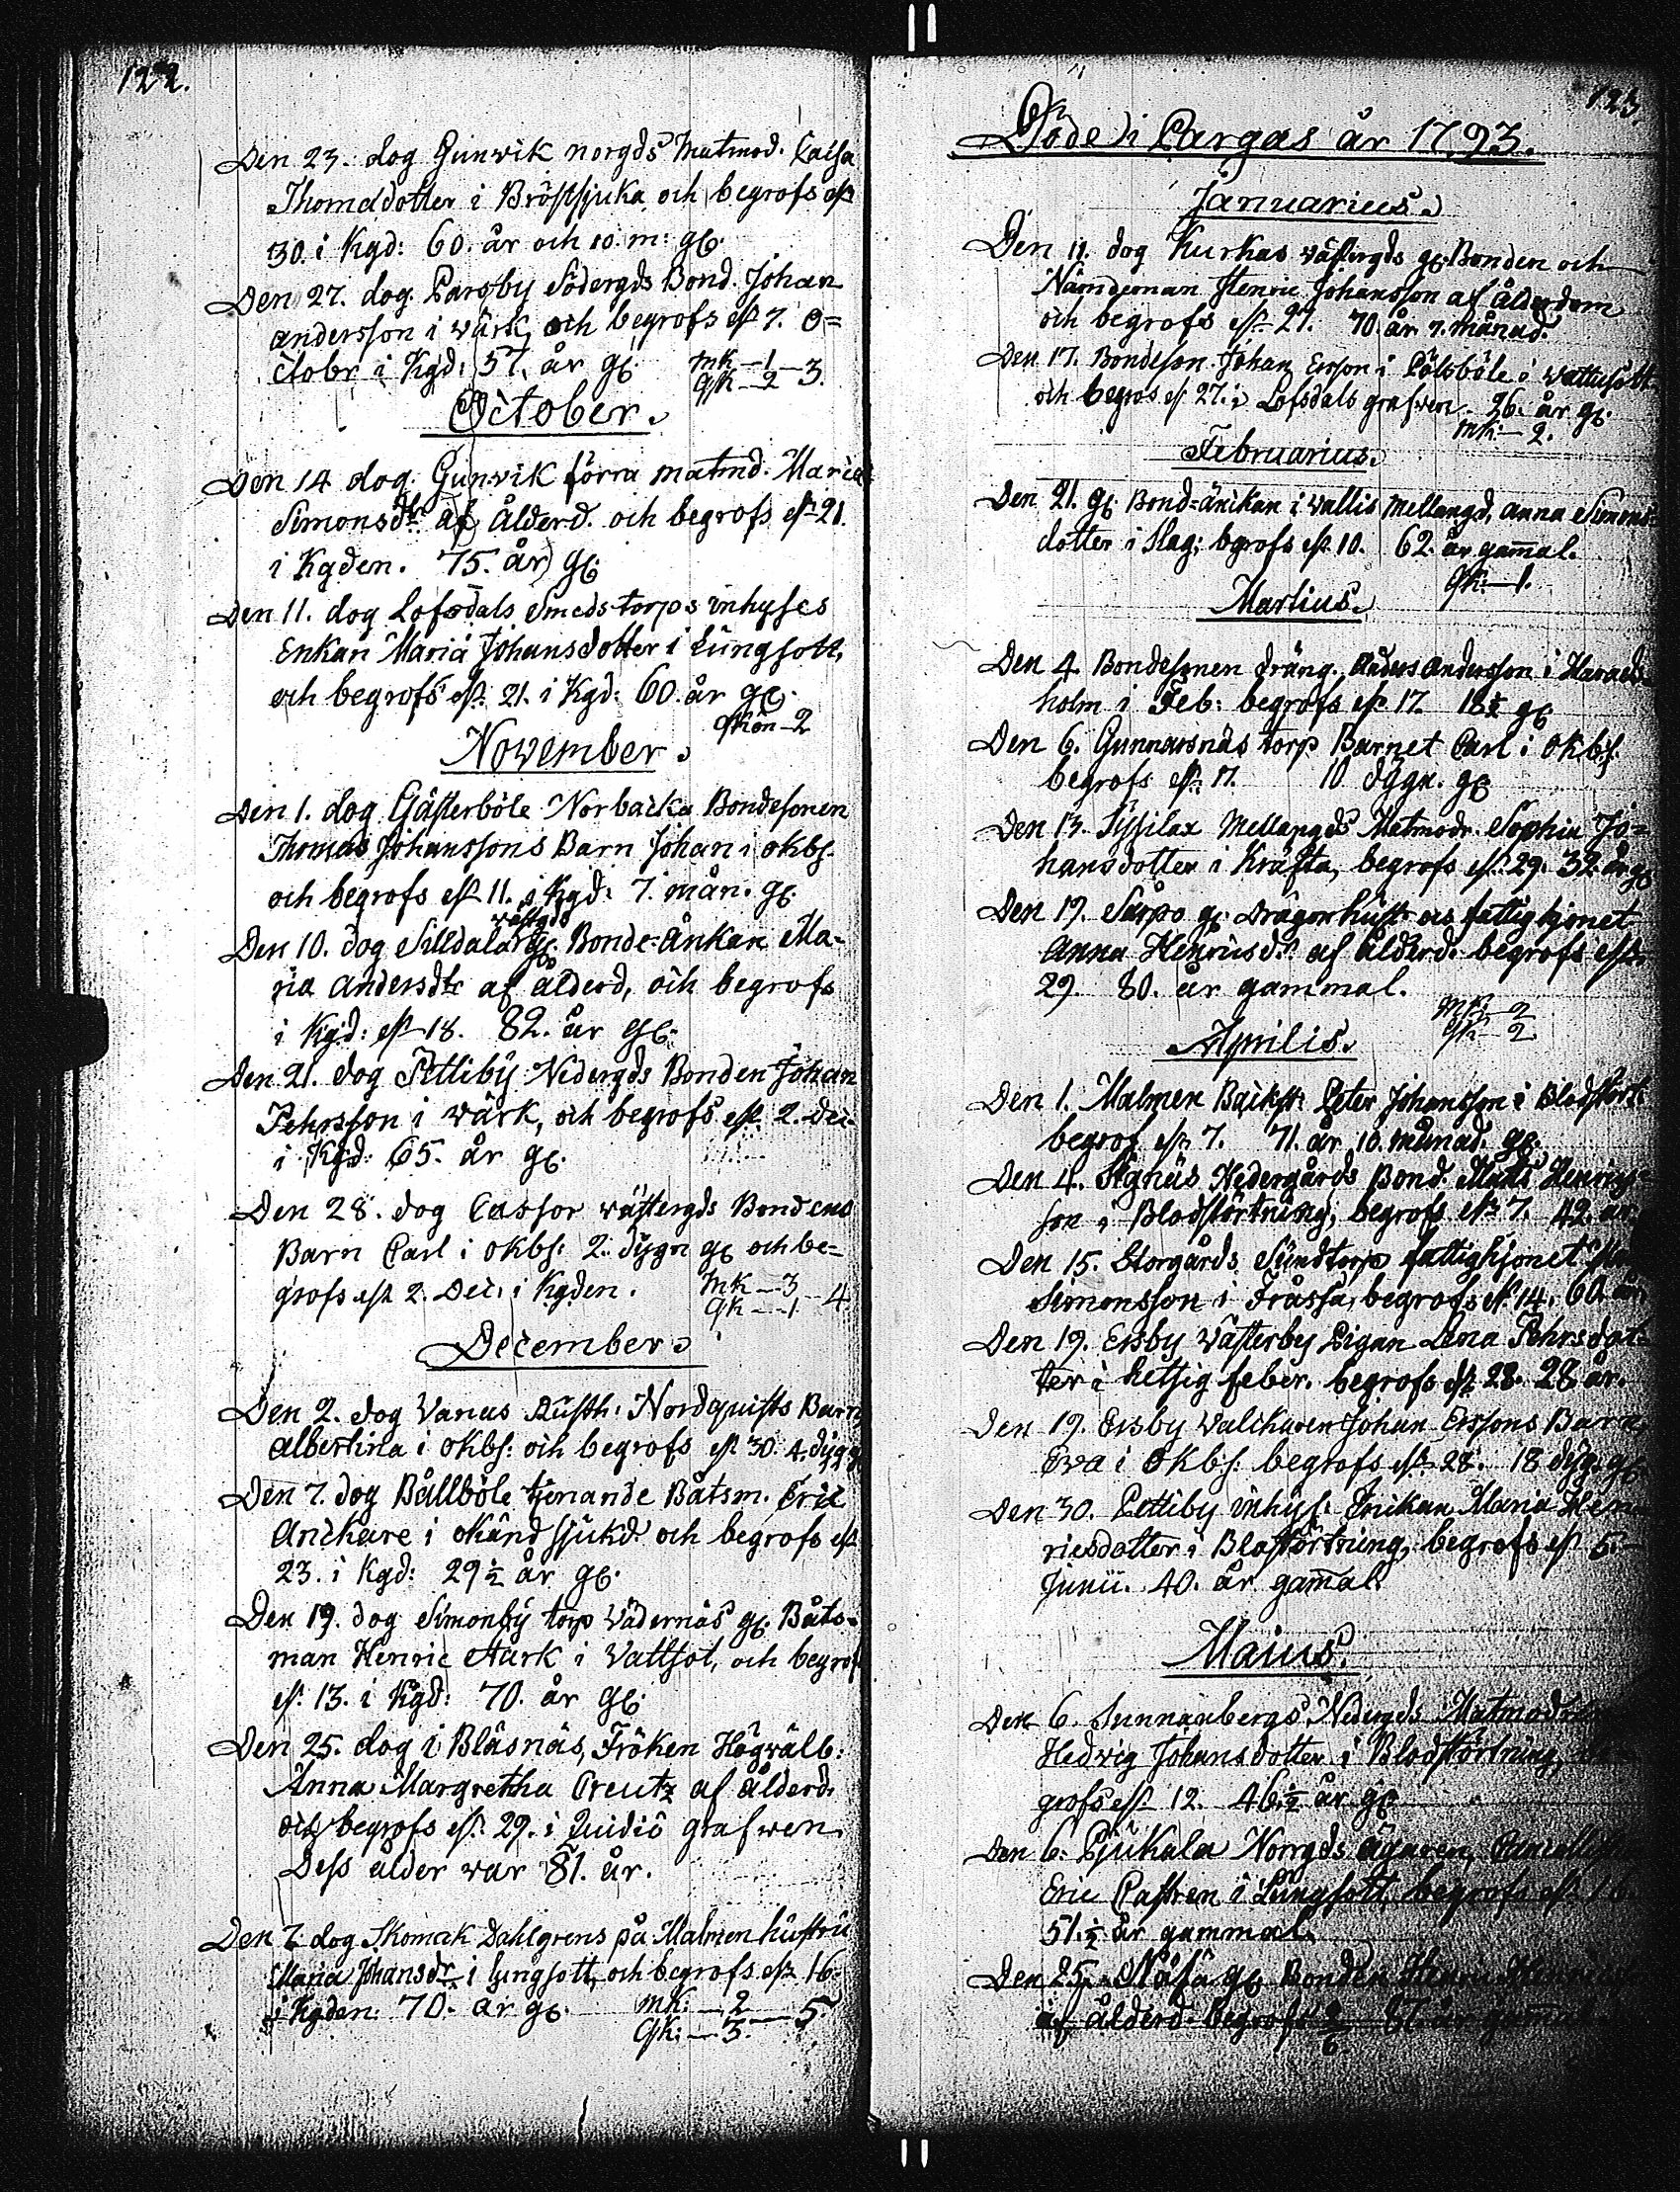 122.
Den 23. dog Gunvik norgds Matmod. Caisa
Thomasdotter i Bröstsjuka och begrofs eft
30. i Kgd: 60. år och 10. m: gl.
Den 27. dog. Pargby Södergds Bond. Johan
andersson i wärk, och begrofs eft 7. O=
ctobr i Kgd: 57. år gl. mk—1
qk—2—3.
October.
Den 14 dog. Gunvik förra matmd. Maria
Simonsdtr af ålderd. och begrofs eft 21.
i Kgden. 75. år gl.
Den 11. dog Lofsdals Smedstorps inhyses
Enkan Maria Johansdotter i Lungsott,
och begrofs eft. 21. i Kgd: 60. år gl.
qkön—2
November.
Den 1. dog Gästerböle Norbacka Bondesonen
Thomas Johanssons Barn Johan i okbs.
och begrofs eft 11. i Kgd: 7. mån. gl.
wästgds
Den 10. dog Silldala gl. Bonde-Änkan Ma=
ria andersdtr af ålderd, och begrofs
i Kgd: eft 18. 82. år gl.
Den 21. dog Pettiby Nedergds Bonden Johan
Pehrsson i wärk, och begrofs eft. 2. Dec.
i Kgd: 65. år gl.
Den 28. dog Cassor wästergds Bondens
Barn Carl i okbs: 2. dygn gl och be=
grofs eft 2. Dec. i Kgden. mk—3
qk—1—4
December.
Den 2. dog Vanas Rusth: Nordquists Barn
Albertina i okbs: och begrofs eft 30. 4. dygn
Den 7. dog Bållböle tjenande Båtsm. Eric
Anckare i okänd sjukd. och begrofs eft
23. i Kgd: 29½ år gl.
Den 19. dog Simonby torp Vädernäs gl. Båts=
man Henric Stark i Vattsot, och begrof
eft. 13. i Kgd: 70. år gl.
Den 25. dog i Bläsnäs, Fröken Högwälb:
Anna Margretha Creutz af ålderd.
och begrofs eft. 29. i Quidiö grafwen.
Dess ålder war 81. år.
Den 7. dog Skomak Dahlgrens på Malmen hustru
Maria Johansdr i lungsott, och begrofs eft 16.
i Kgden. 70. år gl. mk:—2
qk:—3.—5
123.
Döde i Pargas år 1793.
Januarius.
Den 11. dog Kurkas wästergds gl. Bonden och
Nämdeman Henric Johansson af Ålderdom
och begrofs eft 27. 70. år 7. månad.
Den 17. Bondeson Johan Ersson i Pölsböle i wattusott
och begrofs eft 27. i Lofsdals grafwen. 26. år gl.
mk:—2.
Februarius.
Den 21. gl Bond-änckan i Vallis Mellangd, anna Simons
dotter i Slag; bgrofs eft 10. 62. år gammal.
qk:—1.
Martius.
Den 4. Bondesonen dräng. andersson i
holm i Feb: begrofs eft 17. 18½ gl
Den 6. Gunnarsnäs torp Barnet Carl i okbs.
begrofs eft 17. 10. dygn. gl
Den 13. Sysilax Mellangds Matmodr. Sophia Jo=
hansdotter i Kräfta, begrofs eft. 29. 32. år gl
Den 19. Sarpo gl. Dragonhustr. och fattighjonet
Anna Henricsdr. af ålderd. begrofs eft.
29. 80. år gammal.
mk:—2
qk—2
Aprilis.
Den 1. Malmen Backst: Peter Johansson i Blodstört.
begrof eft 7. 71. år 10. månad. gl.
Den 4. Stågnäs Nedergårds Bond. Mats Henrics=
son i Blodstörtning, begrofs eft 7. 42. år.
Den 15. Storgårds Sundtorp fattighjonet
Simonsson i Fråssa, begrofs eft. 14. 60. år
Den 19. Ersby Wästerby Pigan Lena Pehrsdot=
ter i hetsig feber. begrofs eft 28. 28 år.
Den 19. Ersby Valckaren Johan Erssons Barn
Eva i Okbs: begrofs eft. 28. 18 dyg. gl.
Den 30. Pettiby inhys. Enckan Maria Hen=
ricsdotter i Blostörtning, begrofs eft 5.
Junii. 40. år gammal.
Maius.
Den 6. Sunnanbergs Nedergds Matmodren
Hedvig Johansdotter i Blodstörtning,
grofs eft 12. 46½ år gl
Den 6. Pjukala Norrgds ägaren,
Eric Castren i Lungsott, begrofs eft 16.
51.½ år gammal.
Den 25. gl. Bonden Henric
af ålderd. begrofs 2/6. år gamal